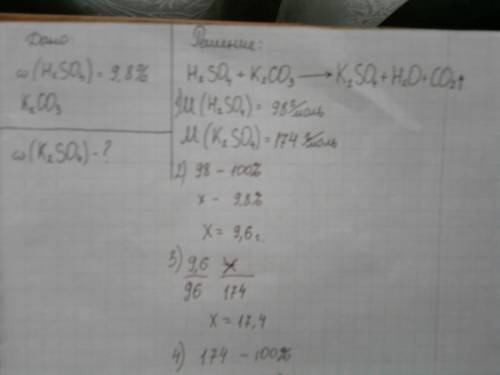 Дано:
ω(H₂SO₄) = 9,8%
K₂CO₃
ω(K₂SO₄) - ?
Решение:
H₂SO₄ + K₂CO₃ → K₂SO₄ + H₂O + CO₂↑
1) M(H₂SO₄) = 98 г/моль
M(K₂SO₄) = 174 г/моль
2) 98 - 100%
x - 9,8%
x = 9,6 г.
3) 9,6/96 x/174
x = 17,4
4) 174 - 100%